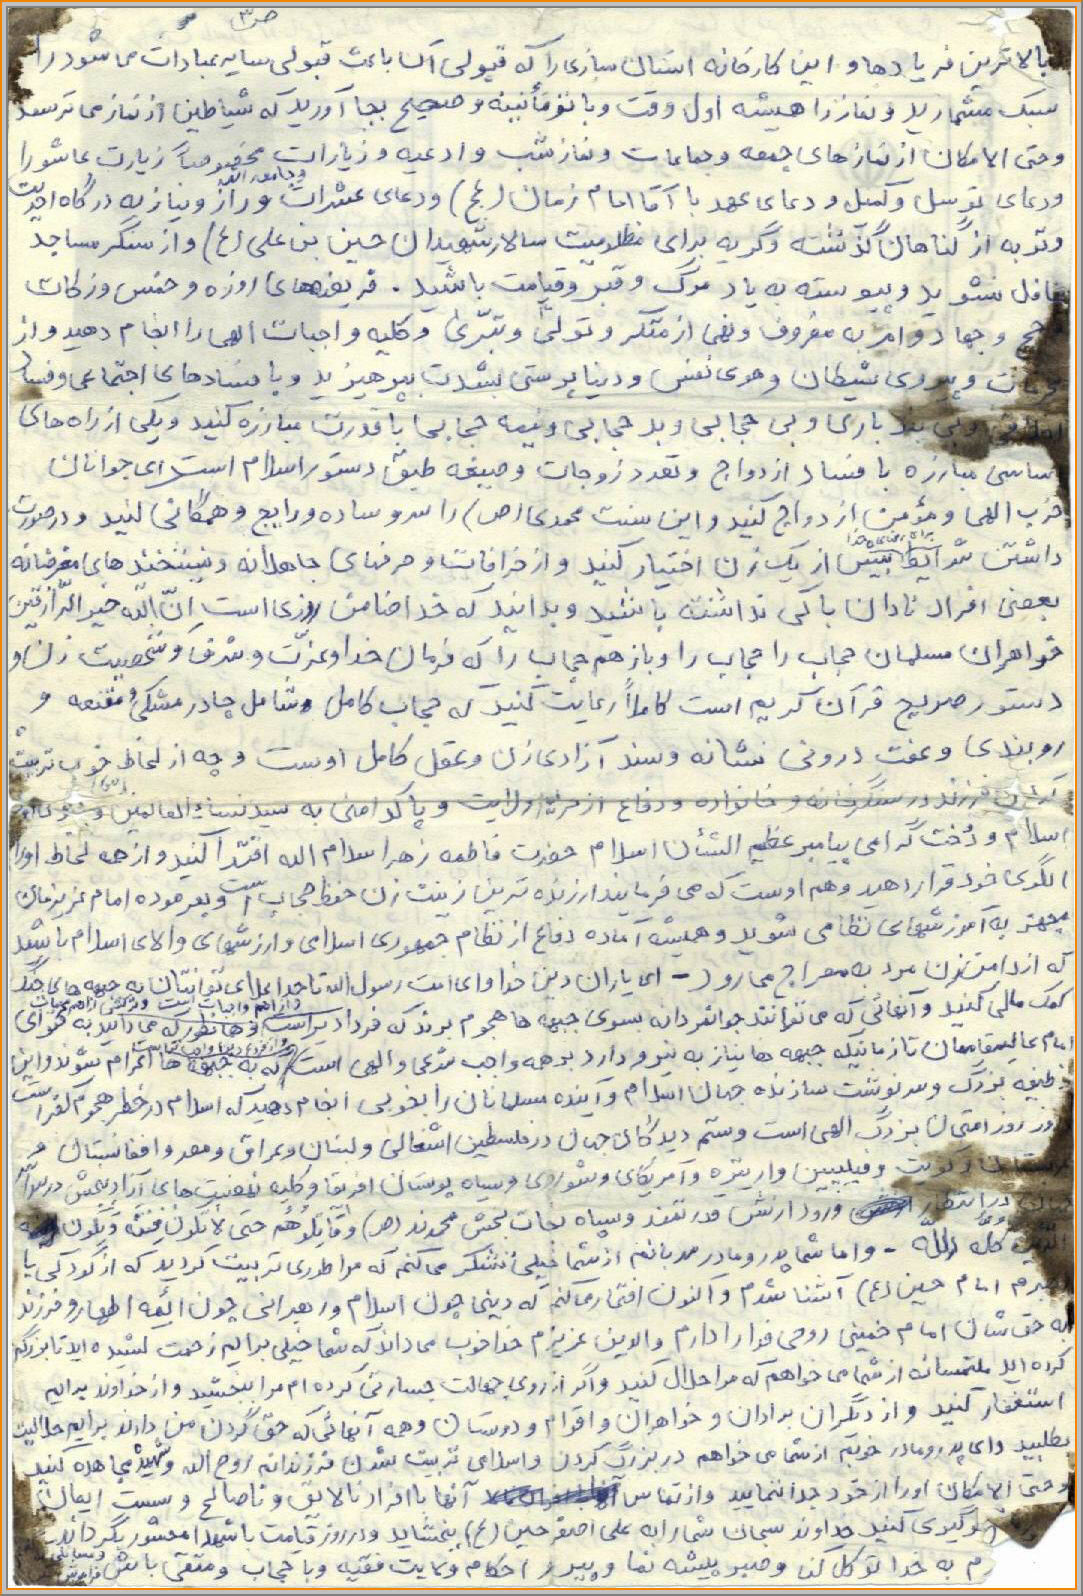 ص۳
بالاترین فریادها و این کارخانه انسان سازی را که قبولی آن باعث قبولی سایر عبادات می شود را
سبک مشمارید و نماز را همیشه اول وقت و با طمأنینه و صحیح بجا آورید که شیاطین از نماز می ترسند
و حتی الامکان از نمازهای جمعه و جماعات و نماز شب و ادعیه و زیارات مخصوصاً زیارت عاشورا
و جامعه
و دعای توسل و کمیل و دعای عهد با آقا امام زمان (عج) و دعای عشرات و راز و نیاز به درگاه احدیت
و توبه از گناهان گذشته و گریه برای مظلومیت سالار شهیدان حسین بن علی (ع) و از سنگر مساجد
غافل نشوید و پیوسته به یاد مرگ و قبر و قیامت باشید . فریضه های روزه و خمس و زکات
حج و جهاد و امر به معروف و نهی از منکر و تولی و تبرّی و کلیه واجبات الهی را انجام دهید و از
محرمات و پیروی شیطان و هوی نفس و دنیا پرستی بشدت بپرهیزید و با فسادهای اجتماعی و فساد
اخلاقی و بی بند باری و بی حجابی و بد حجابی و نیمه حجابی با قدرت مبارزه کنید و یکی از راه های
اساسی مبارزه با فساد ازدواج و تعدد زوجات و صیغه طبق دستور اسلام است ای جوانان
حزب الهی و مؤمن ازدواج کنید و این سنت محمدی (ص) را سر و ساده و رایج و همگانی کنید و در صورت
برای رضای خدا
داشتن شرایط بیش از یک زن اختیار کنید و از خرافات و حرفهای جاهلانه و نیشخندهای مغرضانه
بعضی افراد نادان باکی نداشته باشید و بدانید که خدا ضامن روزی است انّ الله خیر الرّازقین
خواهران مسلمان حجاب را حجاب را و باز هم حجاب را که فرمان خدا و عزّت و شرف و شخصیت زن و
دستور صریح قرآن کریم است کاملاً رعایت کنید که حجاب کامل شامل چادر مشکی و مقنعه و
روبندی و عفت درونی نشانه و سند آزادی زن و عقل کامل اوست و چه از لحاظ خوب تربیت
کردن فرزند در سنگر خانه و خانواده و دفاع از حریم ولایت و پاکدامنی به سید نساء العالمین
اسلام و دُخت گرامی پیامبر عظیم الشأن اسلام حضرت فاطمه زهرا سلام الله اقتدا کنید و از همه لحاظ او را
الگوی خود قرار دهید و هم اوست که می فرمایند ارزنده ترین زینت زن حفظ حجاب است و بفرموده امام عزیزمان
مجهز به آموزشهای نظامی شوید و همیشه آماده دفاع از نظام جمهوری اسلامی و ارزشهای والای اسلام باشید
که از دامن زن مرد به معراج می رود - ای یاران دین خدا و ای امت رسول الله تا حد اعلای توانتان به جبهه های جنگ
کمک مالی کنید و آنهائی که می توانند جوانمردانه بسوی جبهه ها هجوم برند که فردا دیر است و همانطور که می دانید به فتوای
امام عالیمقاممان تا زمانیکه جبهه ها نیاز به نیرو دارد بر همه واجب شرعی و الهی است که به جبهه ها اعزام شوند و این
وظیفه بزرگ و سرنوشت سازنده جهان اسلام و آینده مسلمانان را بخوبی انجام دهید که اسلام در خطر هجوم کفر است
روز روز امتحان بزرگ الهی است و ستم دیدگان جهان در فلسطین اشغالی و لبنان و عراق و مصر و افغانستان و
عربستان و کویت و فیلیپین و اریتره و آمریکای و شوروی و سیاه پوستان افریقا و کلیه نهضت های آزادیبخش در سراسر
جهان در انتظار ورود ارتش قدرتمند و سپاه نجات بخش محمدند (ص) و قاتِلُوهُم حتی لا تکون فتنة و یکون
الدّین کُلّه لِلّه - و اما شما پدر و مادر مهربانم از شما خیلی تشکر می کنم که مرا طوری تربیت کردید که از کودکی با
محرم امام حسین (ع) آشنا شدم و اکنون افتخار می کنم که دینی چون اسلام و رهبرانی چون ائمه اطهار و فرزند
به حق شان امام خمینی روحی فدا را دارم والدین عزیزم خدا خوب می داند که شما خیلی برایم زحمت کشیده اید تا بزرگم
کرده اید ملتمسانه از شما می خواهم که مرا حلال کنید و اگر از روی جهالت جسارتی کرده ام مرا ببخشید و از خداوند برایم
استغفار کنید و از دیگران برادران و خواهران و اقوام و دوستان و همه آنهائی که حق گردن من دارند برایم حلالیت
بطلبید و ای پدر و مادر خوبم از شما می خواهم در بزرگ کردن و اسلامی تربیت شدن فرزندانم روح الله و مجاهده کنید
و حتی الامکان او را از خود جدا ننمایید و از تماس آنها با افراد نالایق و ناصالح و سست ایمان
جلوگیری کنید خداوند سبحان شما را به علی اصغر حسین (ع) ببخشاید و در روز قیامت با شهدا محشور بگرداند
م به خدا توکل کن و صبر پیشه نما و پیرو احکام ولایت فقیه و با حجاب و متقی باش